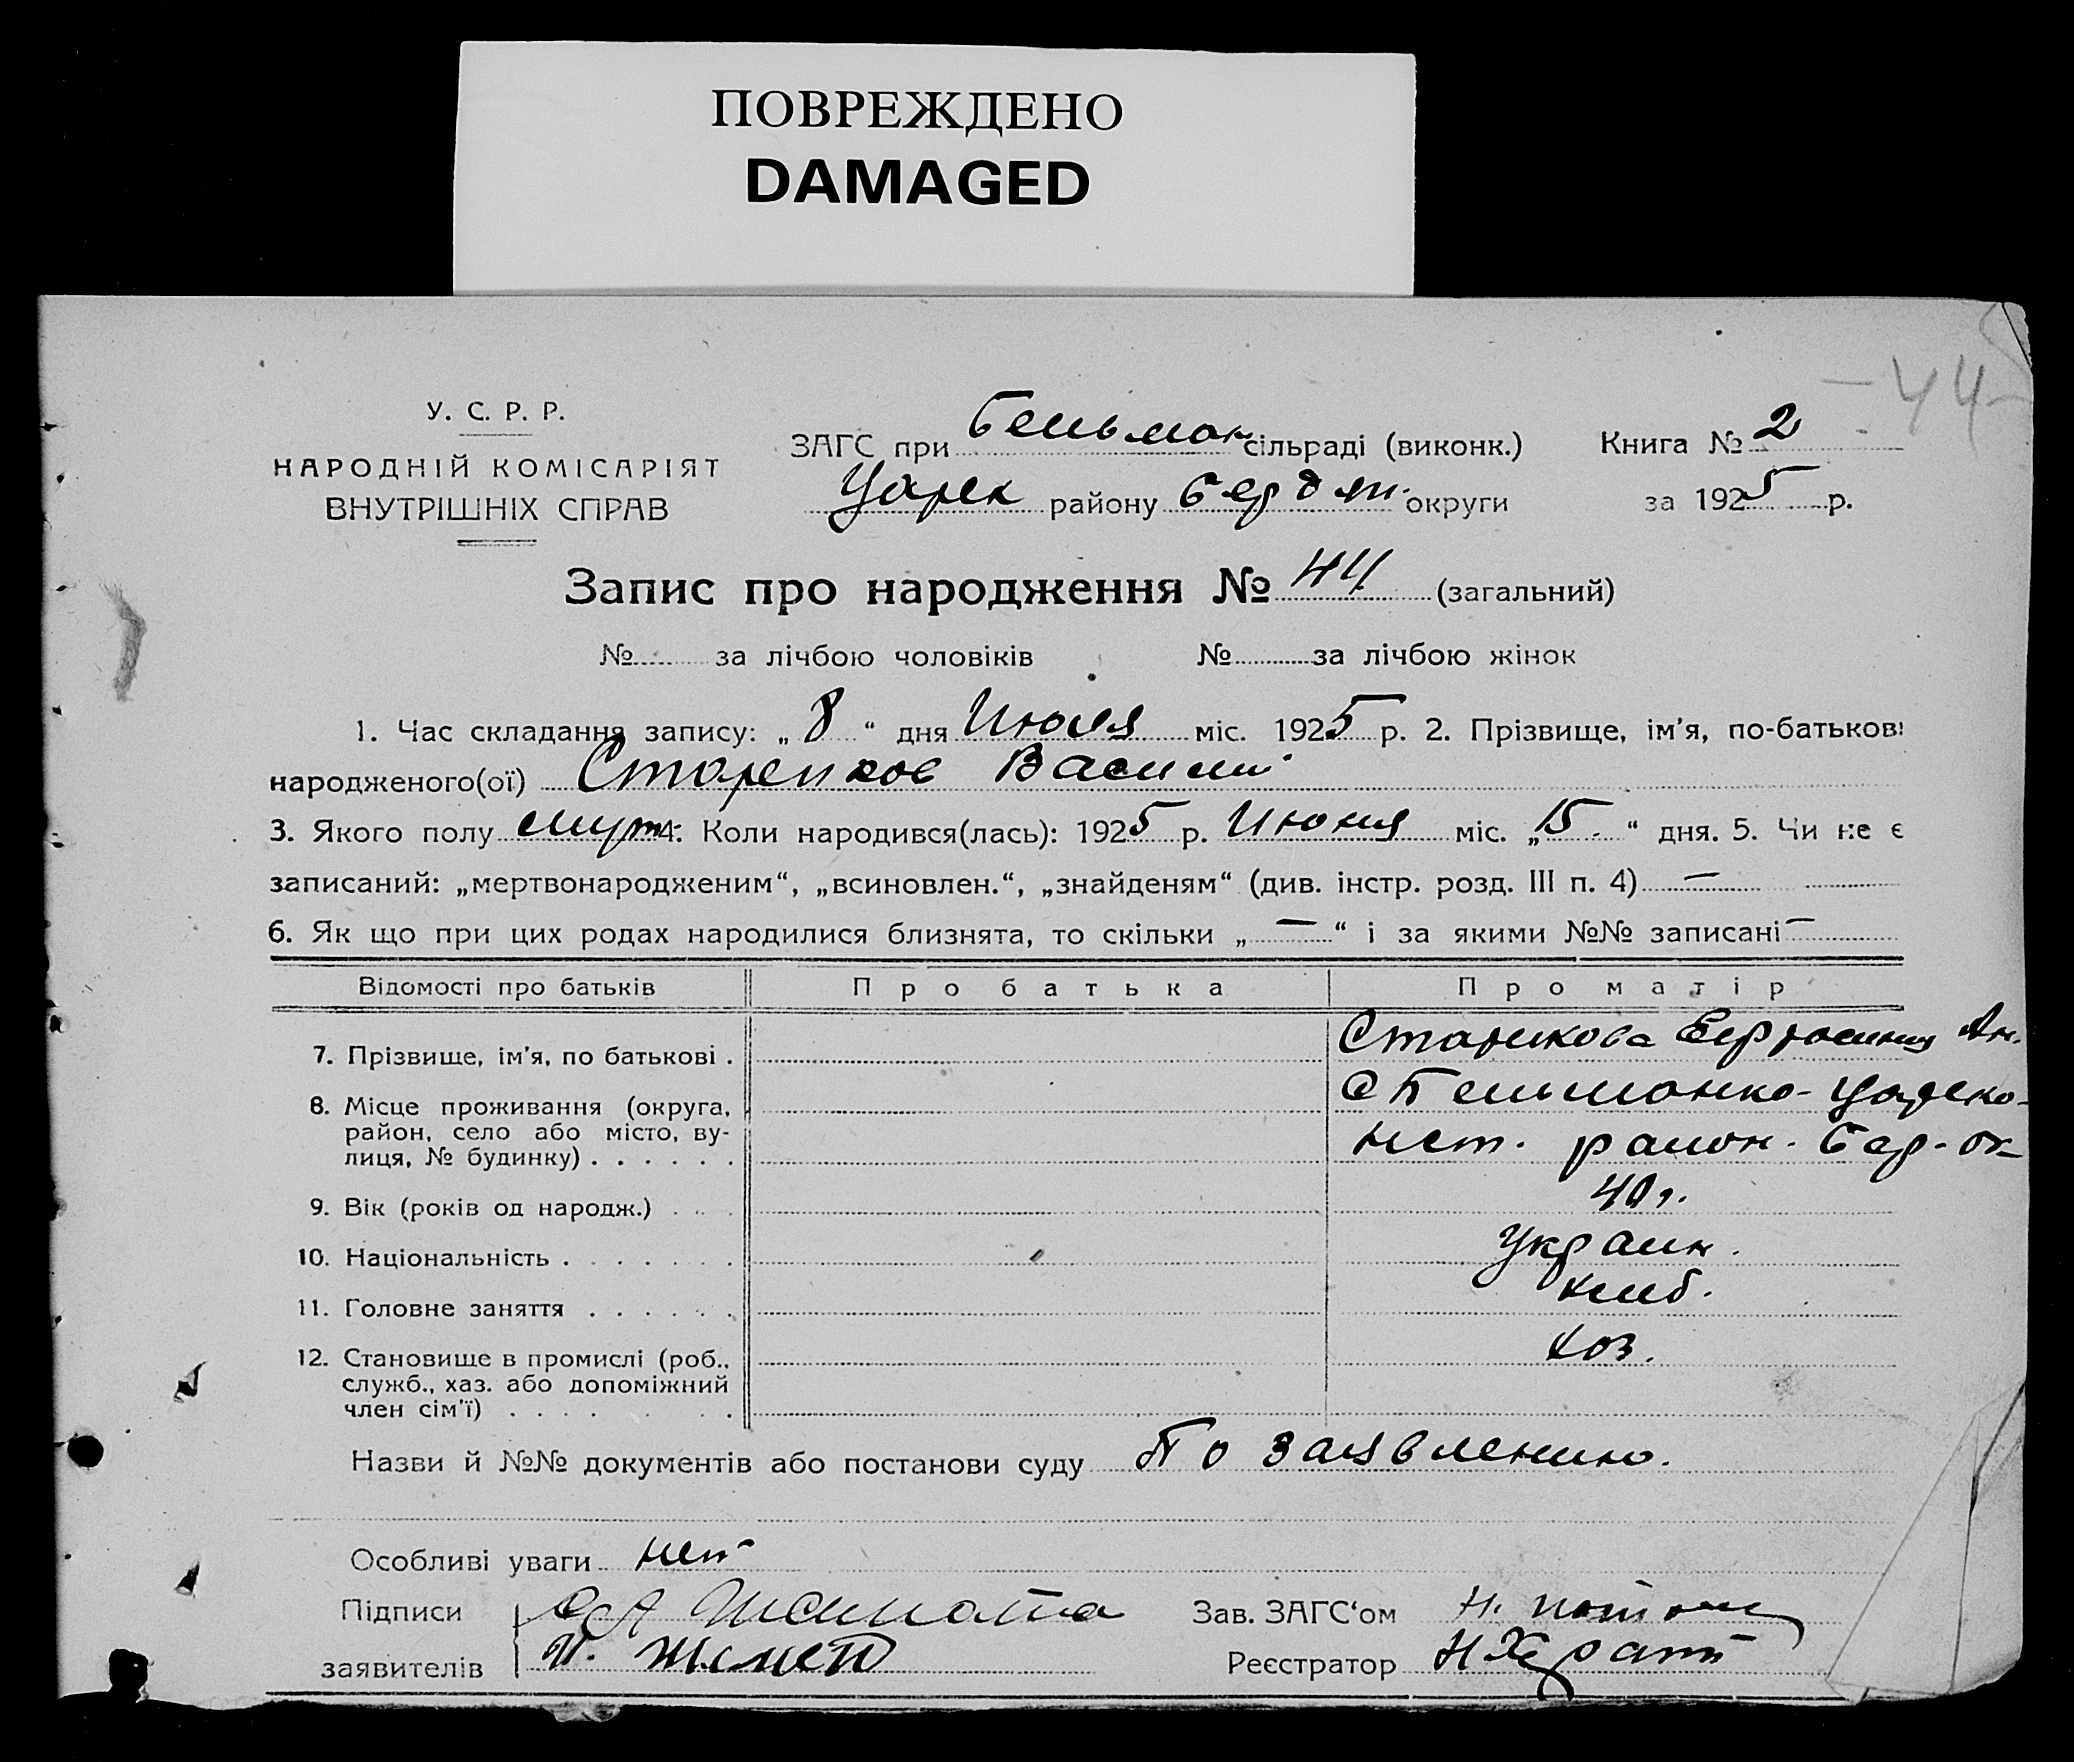 ПОВРЕЖДЕНО
DAMAGED
44
У. С. Р. Р.
НАРОДНІЙ КОМІСАРІЯТ
ВНУТРІШНІХ СПРАВ
ЗАГС при Бельман сільраді (виконк.) Книга № 2
Царек району Бердян. округи за 1925 р.
Запис про народження № 44 (загальний)
№ за лічбою чоловіків № за лічбою жінок
1. Час складання запису: „ 8 “ дня Июля міс. 1925 р. 2. Прізвище, ім'я, по-батькові
народженого(ої) Василий
3. Якого полу муж 4. Коли народився(лась): 1925 р. Июня міс. „ 15. “ дня. 5. Чи не є
записаний: „мертвонародженим“, „всиновлен.“, „знайденям“ (див. інстр. розд. III п. 4) —
6. Як що при цих родах народилися близнята, то скільки „ — “ і за якими №№ записані —
Відомості про батьків Про батька Про матір
7. Прізвище, ім'я, по батькові . Старикова Ан.
8. Місце проживання (округа, с Бельманко- Цареко-
район, село або місто, ву-
лиця, № будинку) . . . . . . нст. район. Бер-ок
9. Вік (років од народж.) . . . 40 г.
10. Національність . . . . . . . Украин.
11. Головне заняття . . . . . . хлеб.
12. Становище в промислі (роб., хоз.
служб., хаз. або допоміжний
член сім'ї) . . . . . . .
Назви й №№ документів або постанови суду По заявлению.
Особливі уваги нет
Підписи Зав. ЗАГС‘ом Н.
заявителів Реєстратор Н